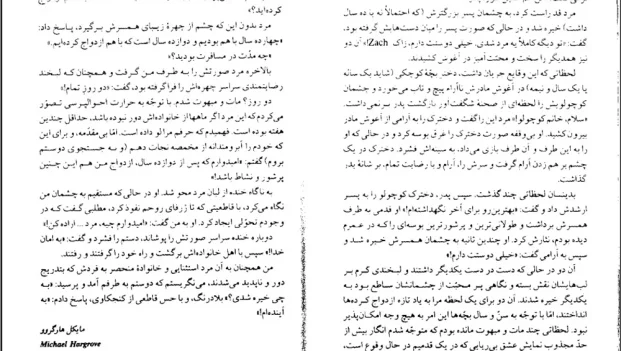 مرد قد راست کرد، به چشمان پسر بزرگترش (که احتمالاً نه یا ده سال
داشت) خیره شد و در حالی که صورت پسر را میان دست‌هایش گرفته بود،
گفت: «تو دیگه کاملاً یه مرد شدی. خیلی دوستت دارم، زاک Zach!» آن دو
نیز همدیگر را سخت و محبّت‌آمیز در آغوش کشیدند.
لحظاتی که این وقایع جریان داشت، دختربچّه کوچکی (شاید یک ساله
یا یک سال و نیمه) در آغوش مادرش ناآرام پیچ و تاب می‌خورد و چشمان
کوچولویش را لحظه‌ای از صحنهٔ شگفت‌آور بازگشت پدر برنمی‌داشت.
«سلام، خانم کوچولو!» مرد این را گفت و دخترک را به آرامی از آغوش مادر
بیرون کشید. او بی‌وقفه صورت دخترک را غرق بوسه کرد و در حالی که او
را به این طرف و آن طرف بازی می‌داد، به سینه‌اش فشرد. دخترک در یک
چشم بر هم زدن آرام گرفت و سرش را، آرام و با رضایت تمام، بر شانهٔ پدر
گذاشت.
بدینسان لحظاتی چند گذشت. سپس پدر، دخترک کوچولو را به پسر
ارشدش داد و گفت: «بهترین‌رو برای آخر نگهداشته‌ام!» او قدمی به طرف
همسرش برداشت و طولانی‌ترین و پرشورترین بوسه‌ای را که در عمرم
دیده بودم، نثارش کرد. او چندین ثانیه به چشمان همسرش خیره شد و
سپس به آرامی گفت: «خیلی دوستت دارم!»
آن دو در حالی که دست در دست یکدیگر داشتند و لبخندی گرم بر
لب‌هایشان نقش بسته و نگاهی پر محبّت از چشمانشان ساطع بود به
یکدیگر خیره شدند. آن دو برای یک لحظه مرا به یاد تازه ازدواج کرده‌ها
انداختند، امّا با توجّه به سنّ و سال بچّه‌ها این امر به هیچ وجه امکان‌پذیر
نبود. لحظاتی چند مات و مبهوت مانده بودم که متوجّه شدم انگار بیش از
حدّ مجذوب نمایش عشق بی‌ریایی که در یک قدمیم در حال وقوع است،
کرده‌اید؟»
مرد بدون این که چشم از چهرهٔ زیبای همسرش برگیرد، پاسخ داد:
«چهارده سال با هم بودیم و دوازده سال است که با هم ازدواج کرده‌ایم.»
«چه مدّت در مسافرت بودید؟»
بالاخره مرد صورتش را به طرف من گرفت و همچنان که لبخند
رضایتمندی سراسر چهره‌اش را فراگرفته بود، گفت: «دو روز تمام!»
دو روز؟ مات و مبهوت شدم. با توجّه به حرارت احوالپرسی تصوّر
می‌کردم که این مرد اگر ماهها از خانواده‌اش دور نبوده باشد، حداقل چندین
هفته بوده است. فهمیدم که حرفم مرا لو داده است. امّا بی‌مقدّمه، و برای این
که خودم را آبرومندانه از مخمصه نجات دهم (و به جستجوی دوستم
بروم) گفتم: «امیدوارم که پس از دوازده سال، ازدواج من هم این چنین
پرشور و نشاط باشد!»
به ناگاه خنده از لبان مرد محو شد. او در حالی که مستقیم به چشمان من
نگاه می‌کرد، با قاطعیتی که تا ژرفای روحم نفوذ کرد، مطلبی گفت که در
وجودم تحوّلی ایجاد کرد. او به من گفت: «امیدوارم چیه، مرد... اراده کن!»
دوباره خنده سراسر صورتش را پوشاند، دستم را فشرد و گفت: «به امان
خدا!» سپس با اهل خانواده‌اش برگشت و راه خود را گرفتند و رفتند.
من همچنان به آن مرد استثنایی و خانوادهٔ منحصر به فردش که بتدریج
دور و ناپدید می‌شدند، می‌نگریستم که دوستم به طرفم آمد و پرسید: «به
چی خیره شدی؟» بلادرنگ، و با حس قاطعی از کنجکاوی، پاسخ دادم: «به
آینده‌ام!»
مایکل هارگروو
Michael Hargrove